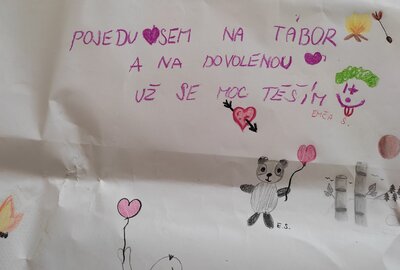 POJEDU SEM NA TÁBOR
A NA DOVOLENOU
UŽ SE MOC TĚŠÍM
EMČA S.
E.S.